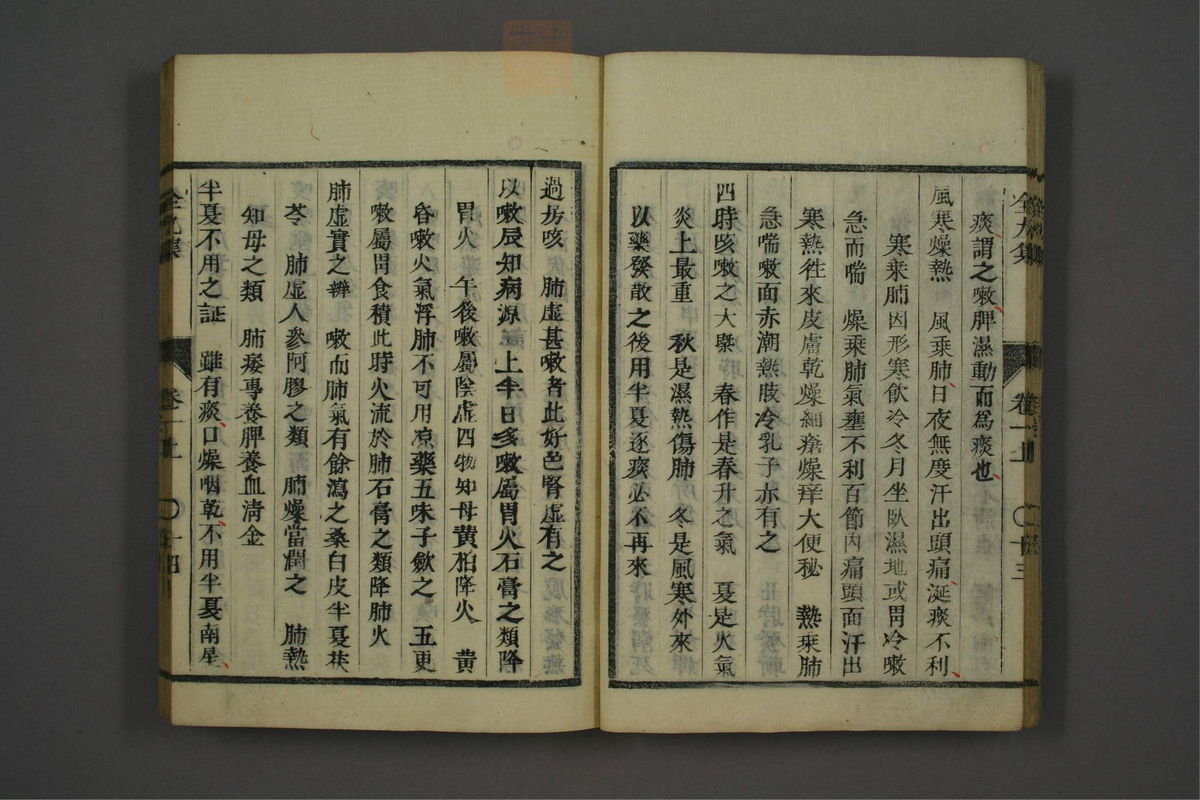 痰謂之嗽脾濕動而為痰也
風寒燥熱　風乗肺日夜無度汗出頭痛涎痰不利
寒乗肺因形寒飲冷冬月坐臥濕地或胃冷嗽
急而喘　燥乗肺氣壅不利百節内痛頭面汗出
寒熱徃來皮膚乾燥細瘡燥痒大便秘　熱乗肺
急喘嗽面赤潮熱肢冷乳子亦有之
四時咳嗽之大槩　春作是春升之氣　夏是火氣
炎上最重　秋是濕熱傷肺　冬是風寒外來
以藥發散之後用半夏逐痰必不再來
全九集　卷一上　〇十三
過房咳　肺虚甚嗽者此好色腎虚有之
以嗽辰知病源　上半日多嗽屬胃火石膏之類降
胃火　午後嗽屬陰虚四物知母黄柏降火　黄
昏嗽火氣浮肺不可用凉藥五味子歛之　五更
嗽屬胃食積此時火流於肺石膏之類降肺火
肺虚實之辨　嗽而肺氣有餘瀉之桑白皮半夏茯
苓　肺虚人參阿膠之類　肺燥當潤之　肺熱
知母之類　肺痿專養脾養血清金
半夏不用之証　雖有痰口燥咽乾不用半夏南星
全九集　卷一上　〇十四